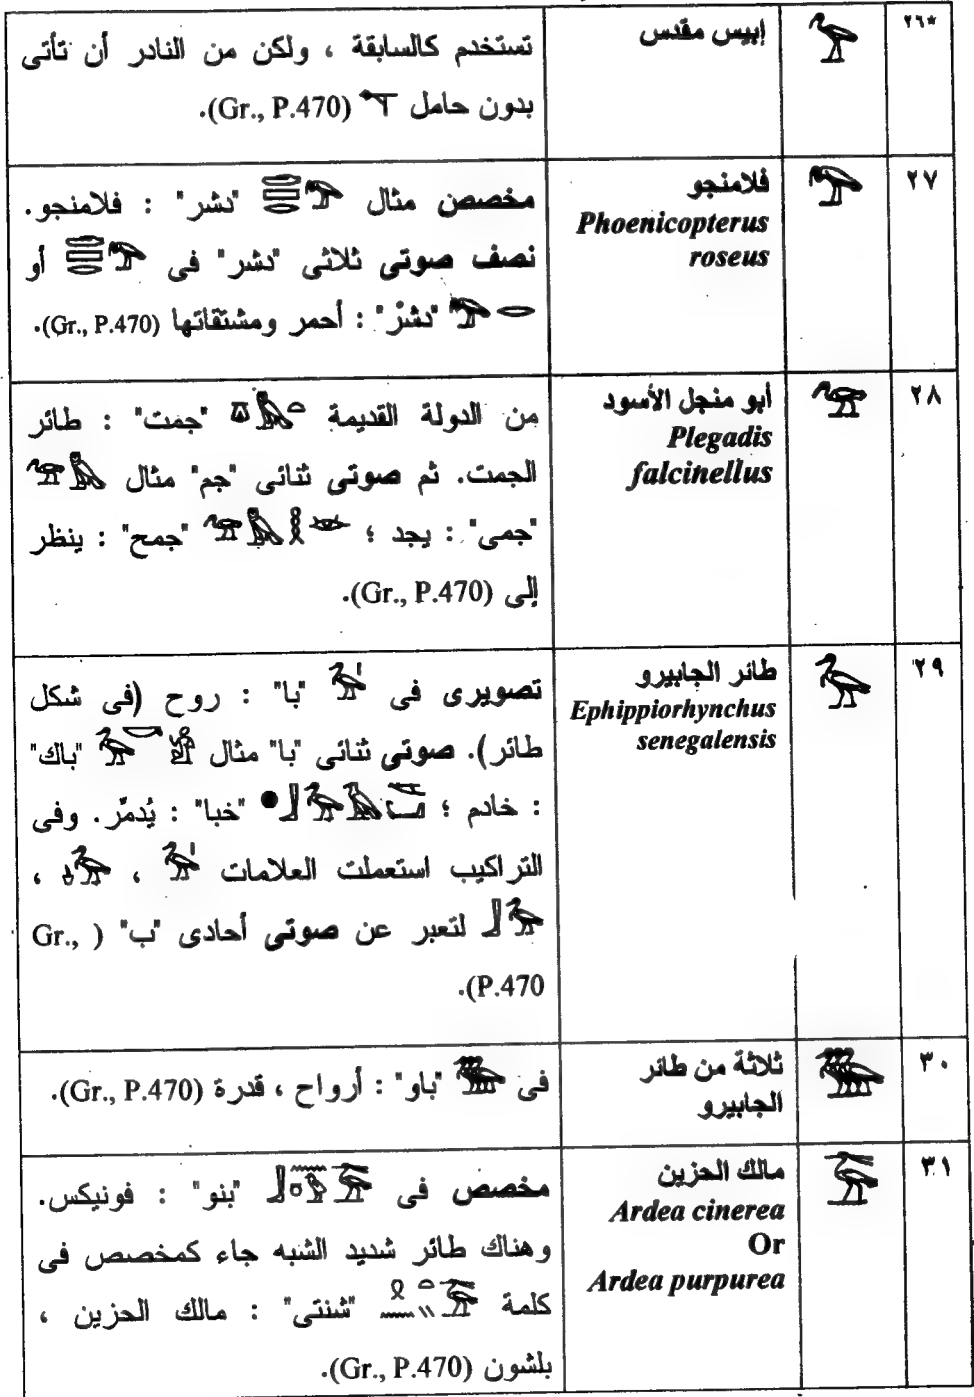 *٢٦
إيبس مقدس
تستخدم كالسابقة ، ولكن من النادر أن تأتى
بدون حامل (Gr., P.470).
٢٧
فلامنجو
Phoenicopterus
roseus
مخصص مثال "دشر" : فلامنجو.
نصف صوتى ثلاثى "دشر" فى أو
"دشر" : أحمر ومشتقاتها (Gr., P.470).
٢٨
أبو منجل الأسود
Plegadis
falcinellus
من الدولة القديمة "جمت" : طائر
الجمت. ثم صوتى ثنائى "جم" مثال
"جمى" : يجد ؛ "جمح" : ينظر
إلى (Gr., P.470).
٢٩
طائر الجابيرو
Ephippiorhynchus
senegalensis
تصويرى فى "با" : روح (فى شكل
طائر). صوتى ثنائى "با" مثال "باك"
: خادم ؛ "خبا" : يُدمّر. وفى
التراكيب استعملت العلامات ، ،
لتعبر عن صوتى أحادى "ب" (Gr.,
P.470).
٣٠
ثلاثة من طائر
الجابيرو
فى "باو" : أرواح ، قدرة (Gr., P.470).
٣١
مالك الحزين
Ardea cinerea
Or
Ardea purpurea
مخصص فى "بنو" : فونيكس.
وهناك طائر شديد الشبه جاء كمخصص فى
كلمة "شنتى" : مالك الحزين ،
بلشون (Gr., P.470).